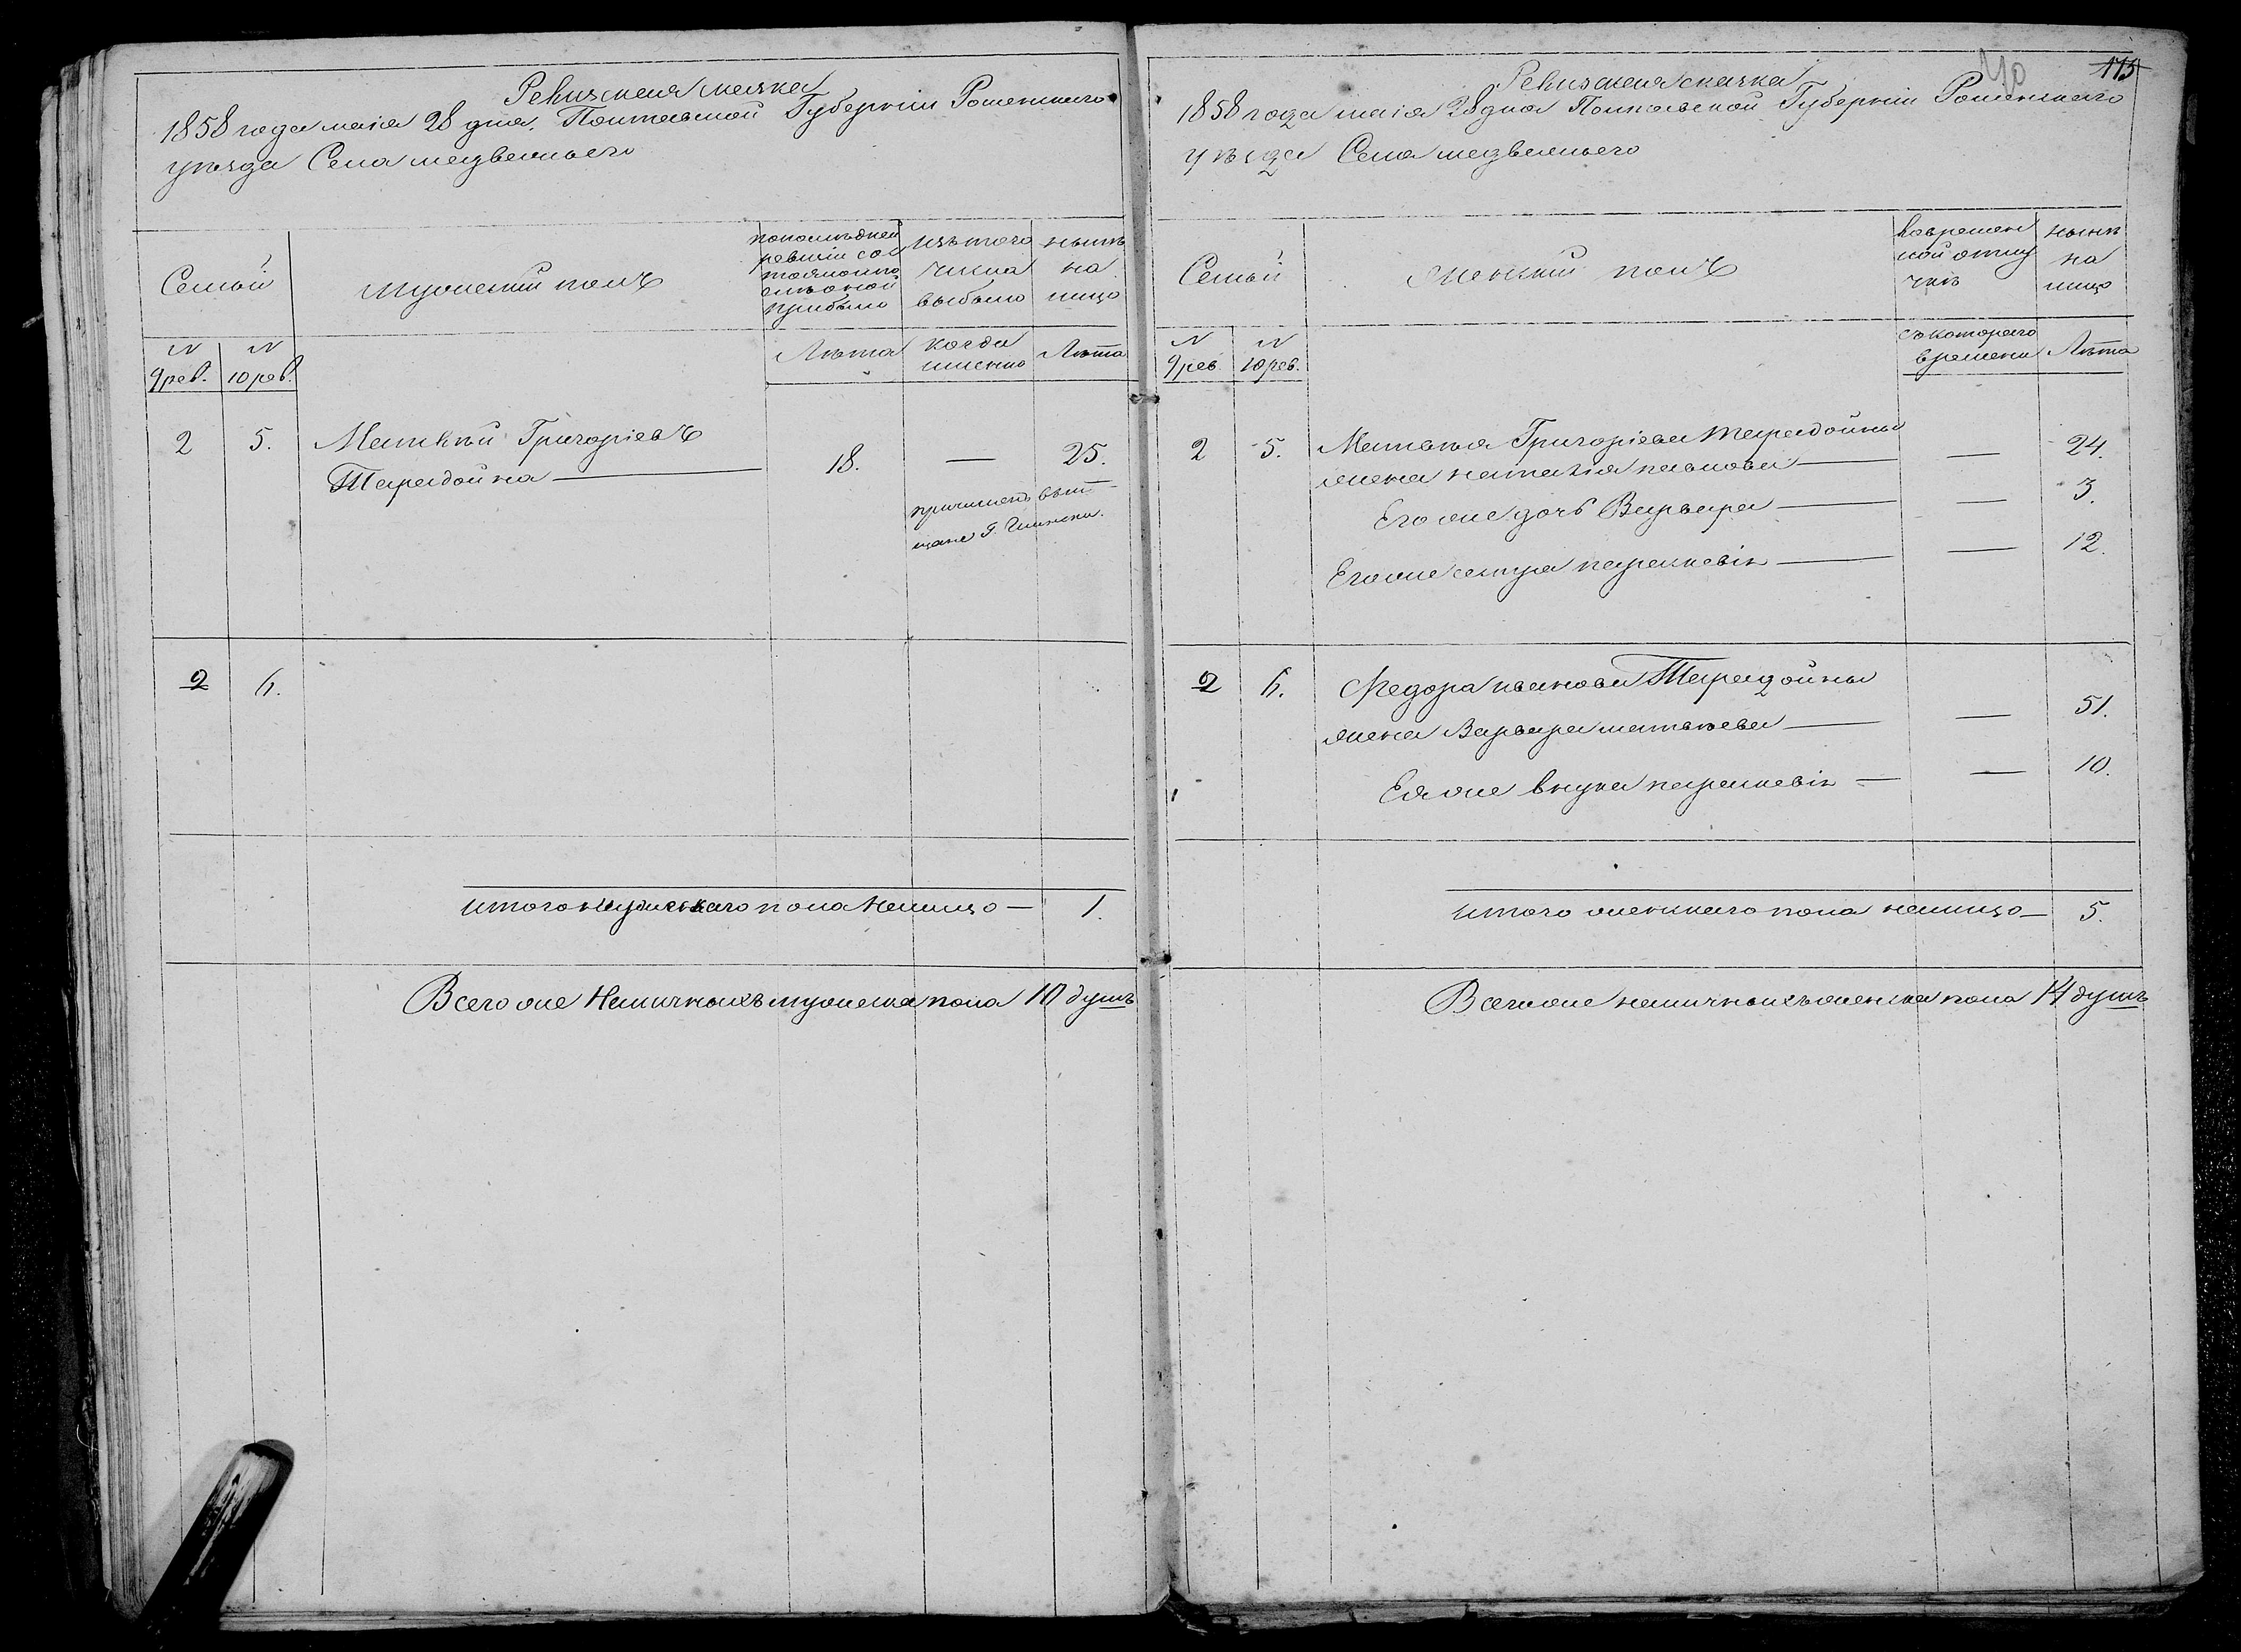 Ревизская сказка
1858 года маія 28 дня. Полтавской Губерніи Роменскаго
уѣзда Села медвежьего
Семьи
мужеский полъ
по последней
ревизіи сос
тояло и по
слѣ оной
прибыло
изъ того
числа
выбыло
нынѣ
на
лицо
N
9 рев.
N
10 рев.
Лѣта
когда
именно
Лѣта
2 5. Матвѣй Григоріевъ
Тарадойна — 18. — 25.
причислен вмѣ
щане Г.
2 6.
итого мужескаго пола налицо — 1.
Всего же Наличныхъ мужеска пола 10 душъ
40
115
Ревизская сказка
1858 года маія 28 дня Полтавской Губерніи Роменскаго
уѣзда Села медвежьего
Семьи
женский полъ
во времен
ной отлу
чкѣ
нынѣ
на
лицо
N
9 рев.
N
10 рев.
съ котораго
времени
Лѣта
2 5. Матвѣя Григоріева Тарадойны
жена наталія павлова — — 24.
Его же дочь Варвара — — 3.
Его же сестра парасковія — — 12.
2 6. Федора иванова Тарадойны
жена Варвара матвѣева — — 51.
Ея же внука парасковія — — 10.
итого женскаго пола налицо — 5.
Всего же наличныхъ женска пола 14 душъ